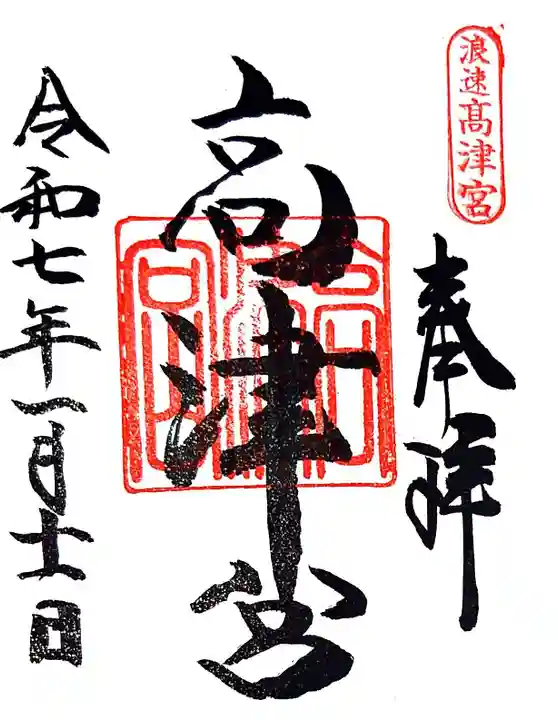 浪速高津宮
奉拝
高津宮
高津宮
令和七年一月十一日